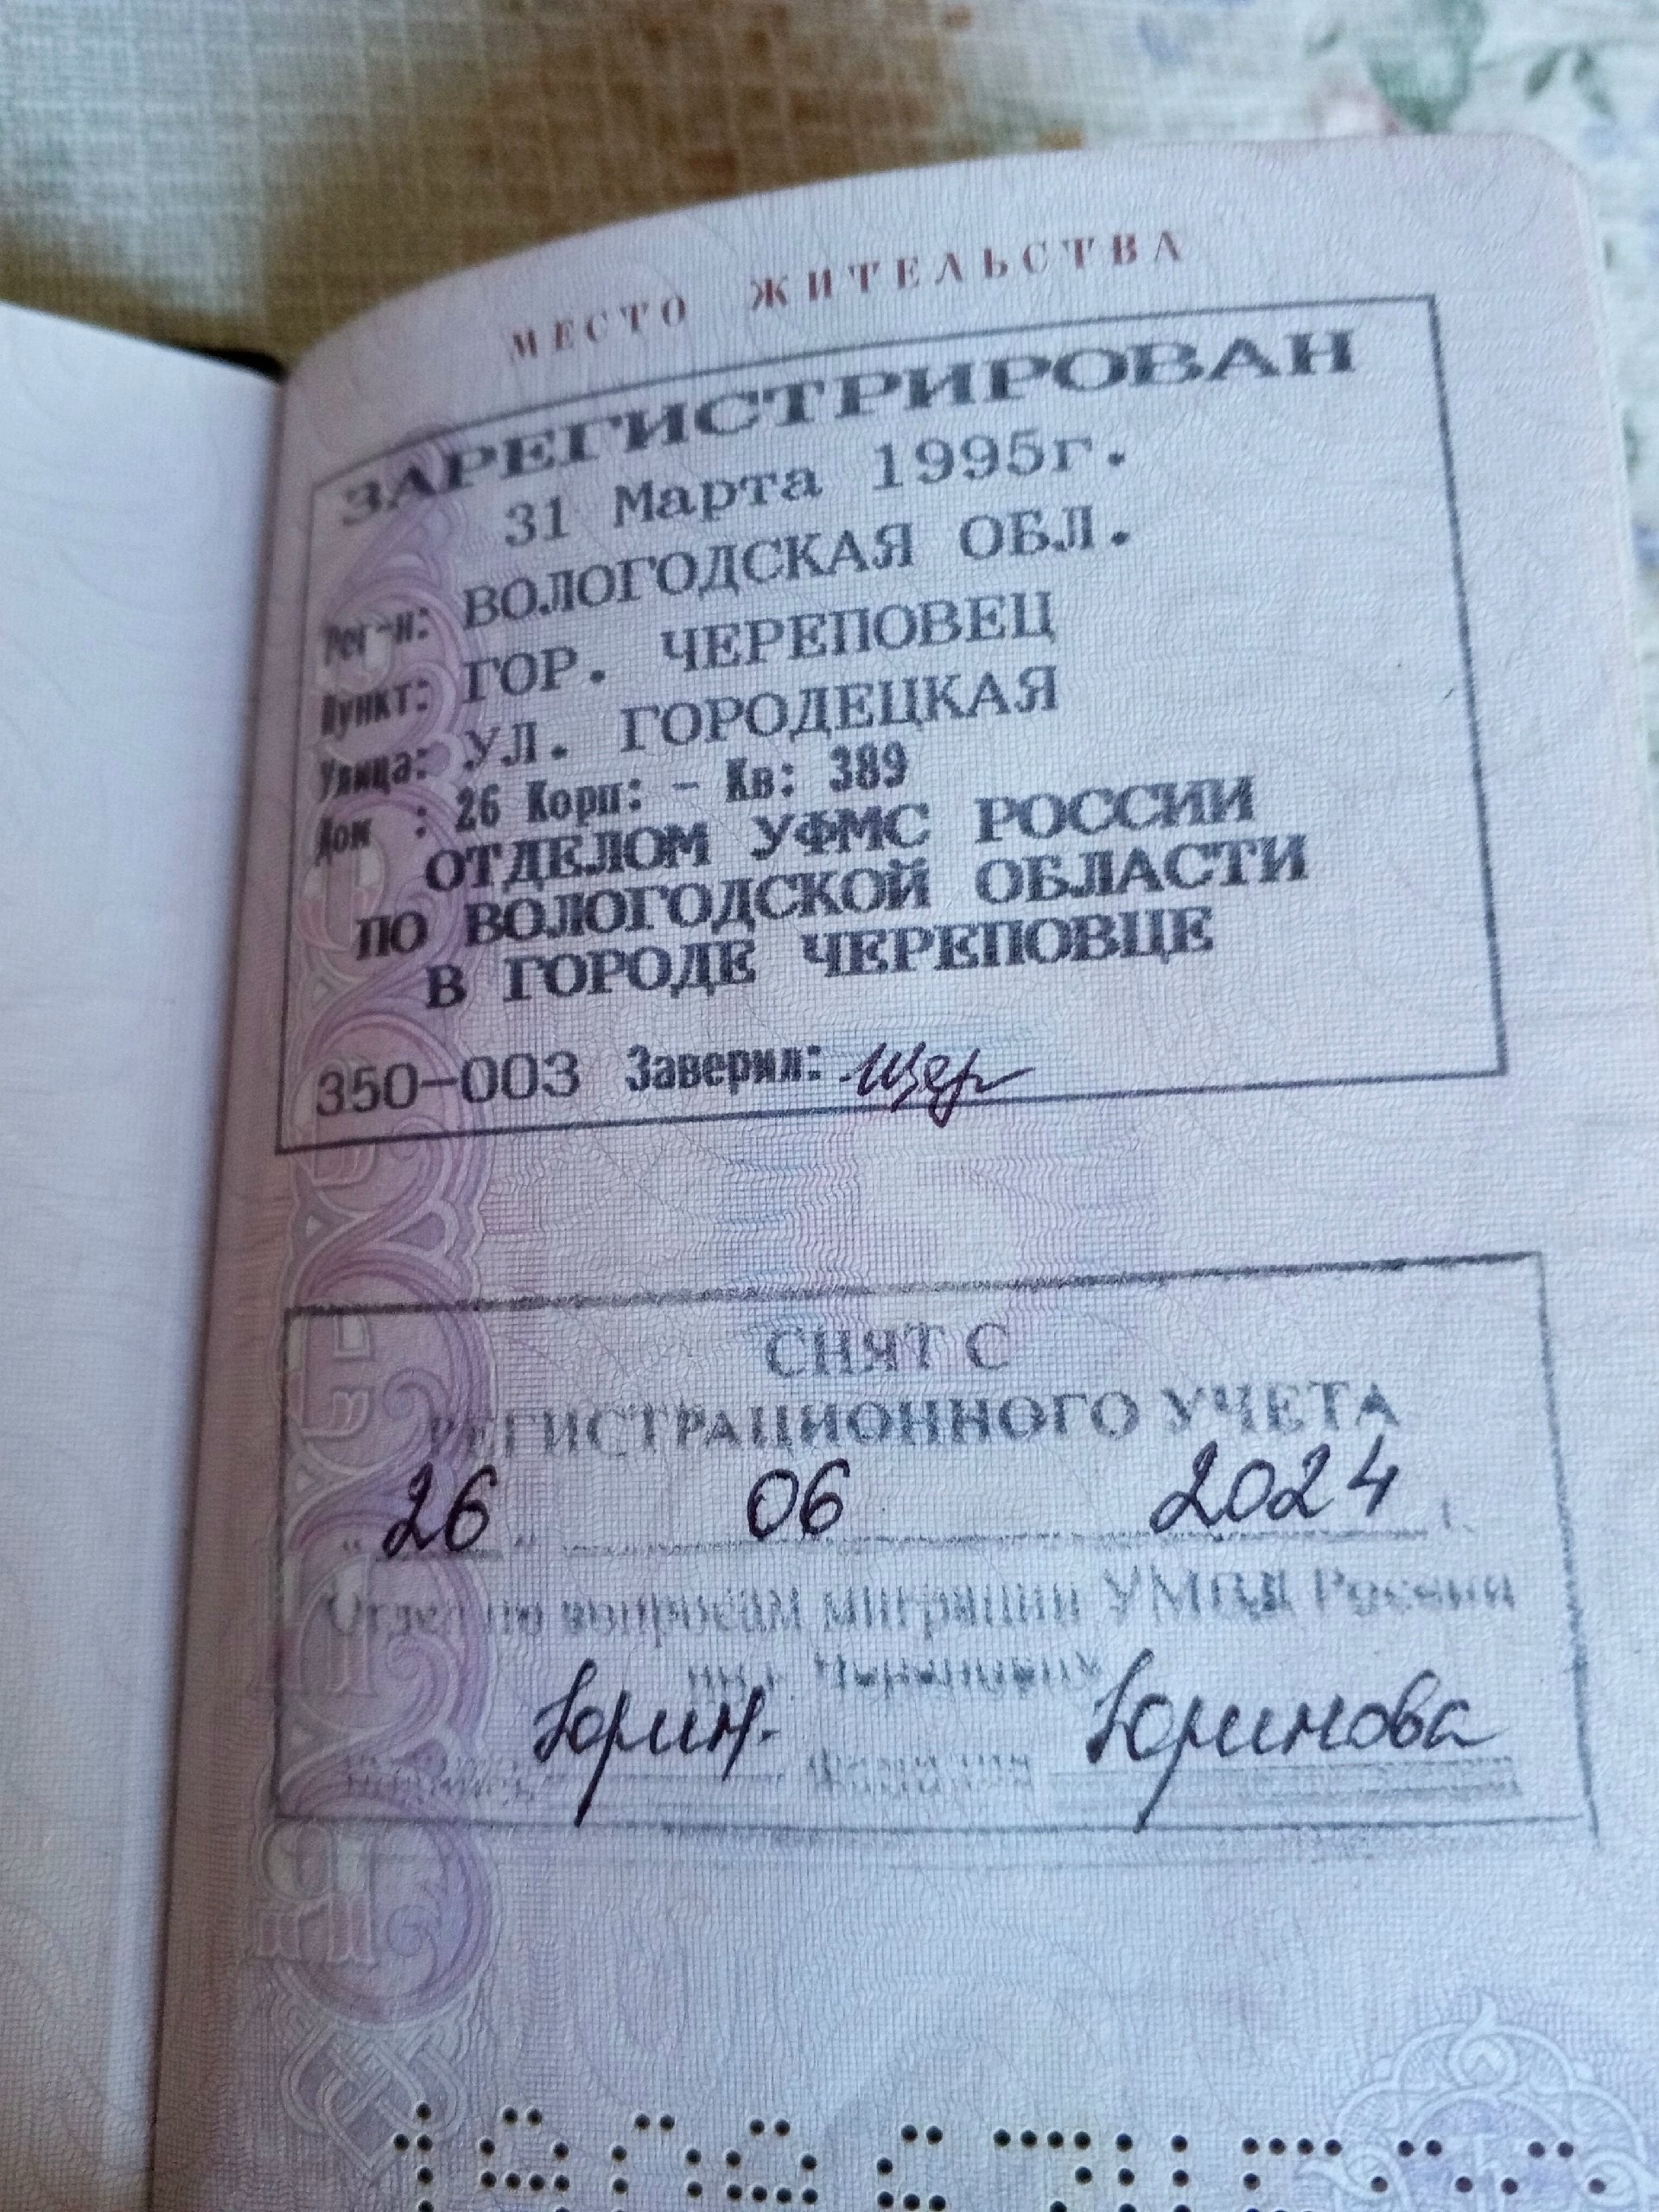 МЕСТО ЖИТЕЛЬСТВА
ЗАРЕГИСТРИРОВАН
31 Марта 1995г.
Рег-н: ВОЛОГОДСКАЯ ОБЛ.
Пункт: ГОР. ЧЕРЕПОВЕЦ
Улица: УЛ. ГОРОДЕЦКАЯ
Дом : 26 Корп: - Кв: 389
ОТДЕЛОМ УФМС РОССИИ
ПО ВОЛОГОДСКОЙ ОБЛАСТИ
В ГОРОДЕ ЧЕРЕПОВЦЕ
350-003 Заверил: Щер
СНЯТ С
РЕГИСТРАЦИОННОГО УЧЕТА
"26" 06 2024 г.
Отдел по вопросам миграции УМВД России
по г. Череповцу
Юрин. Фамилия Юринова